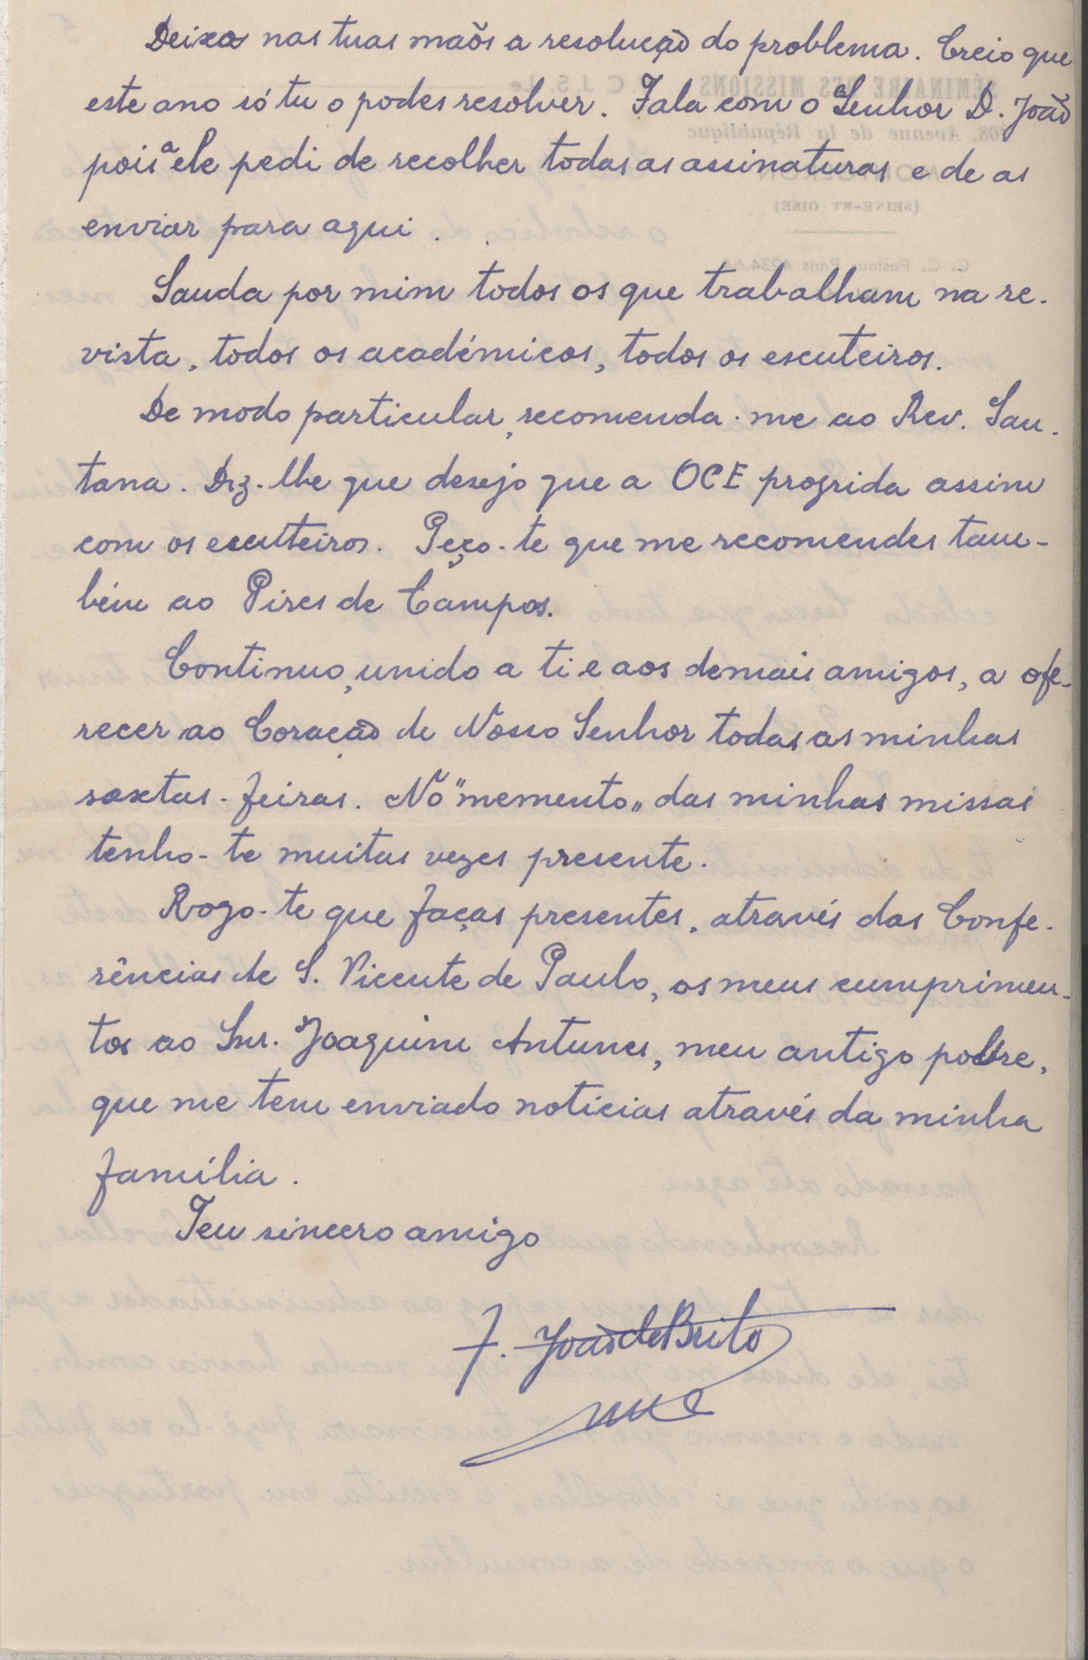 Deixo nas tuas mãos a resolução do problema. Creio que
este ano só tu o podes resolver. Fala com o Senhor D. João
pois a ele pedi de recolher todas as assinaturas e de as
enviar para aqui.
Sauda por mim todos os que trabalham na re-
vista, todos os académicos, todos os escuteiros.
De modo particular, recomenda-me ao Rev. San-
tana. Diz-lhe que desejo que a OCE progrida assim
com os escuteiros. Peço-te que me recomendes tam-
bém ao Pires de Campos.
Continuo, unido a ti e aos demais amigos, a ofe-
recer ao Coração de Nosso Senhor todas as minhas
sextas-feiras. No "memento" das minhas missas
tenho-te muitas vezes presente.
Rogo-te que faças presentes, através das Confe-
rências de S. Vicente de Paulo, os meus cumprimen-
tos ao Snr. Joaquim Antunes, meu antigo pobre,
que me tem enviado notícias através da minha
família.
Teu sincero amigo
f. João de Brito